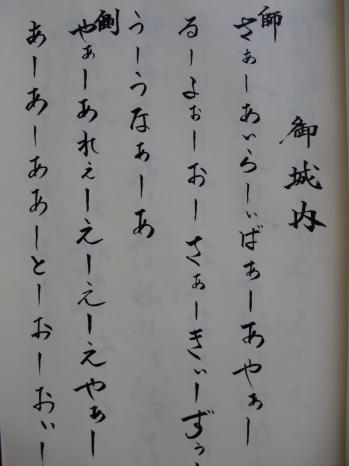 御城内
師
さぁーあぃらーぃばぁーあやぁー
るーよぉーおーさぁーきぃーずぅ
うーうなぁーあ
側
やぁーあれぇーえーえーえやぁー
あーあーああーとーおーおぃー